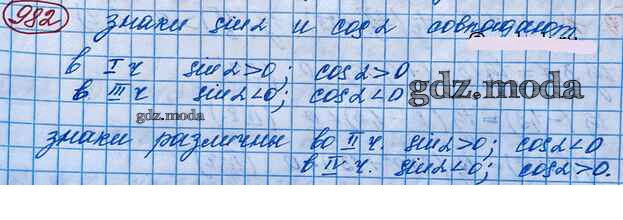 982 знаки sin α и cos α совпадают.
в I ч sin α > 0; cos α > 0
в III ч sin α < 0; cos α < 0
gdz.moda
gdz.moda
знаки различны во II ч. sin α > 0; cos α < 0
в IV ч. sin α < 0; cos α > 0.